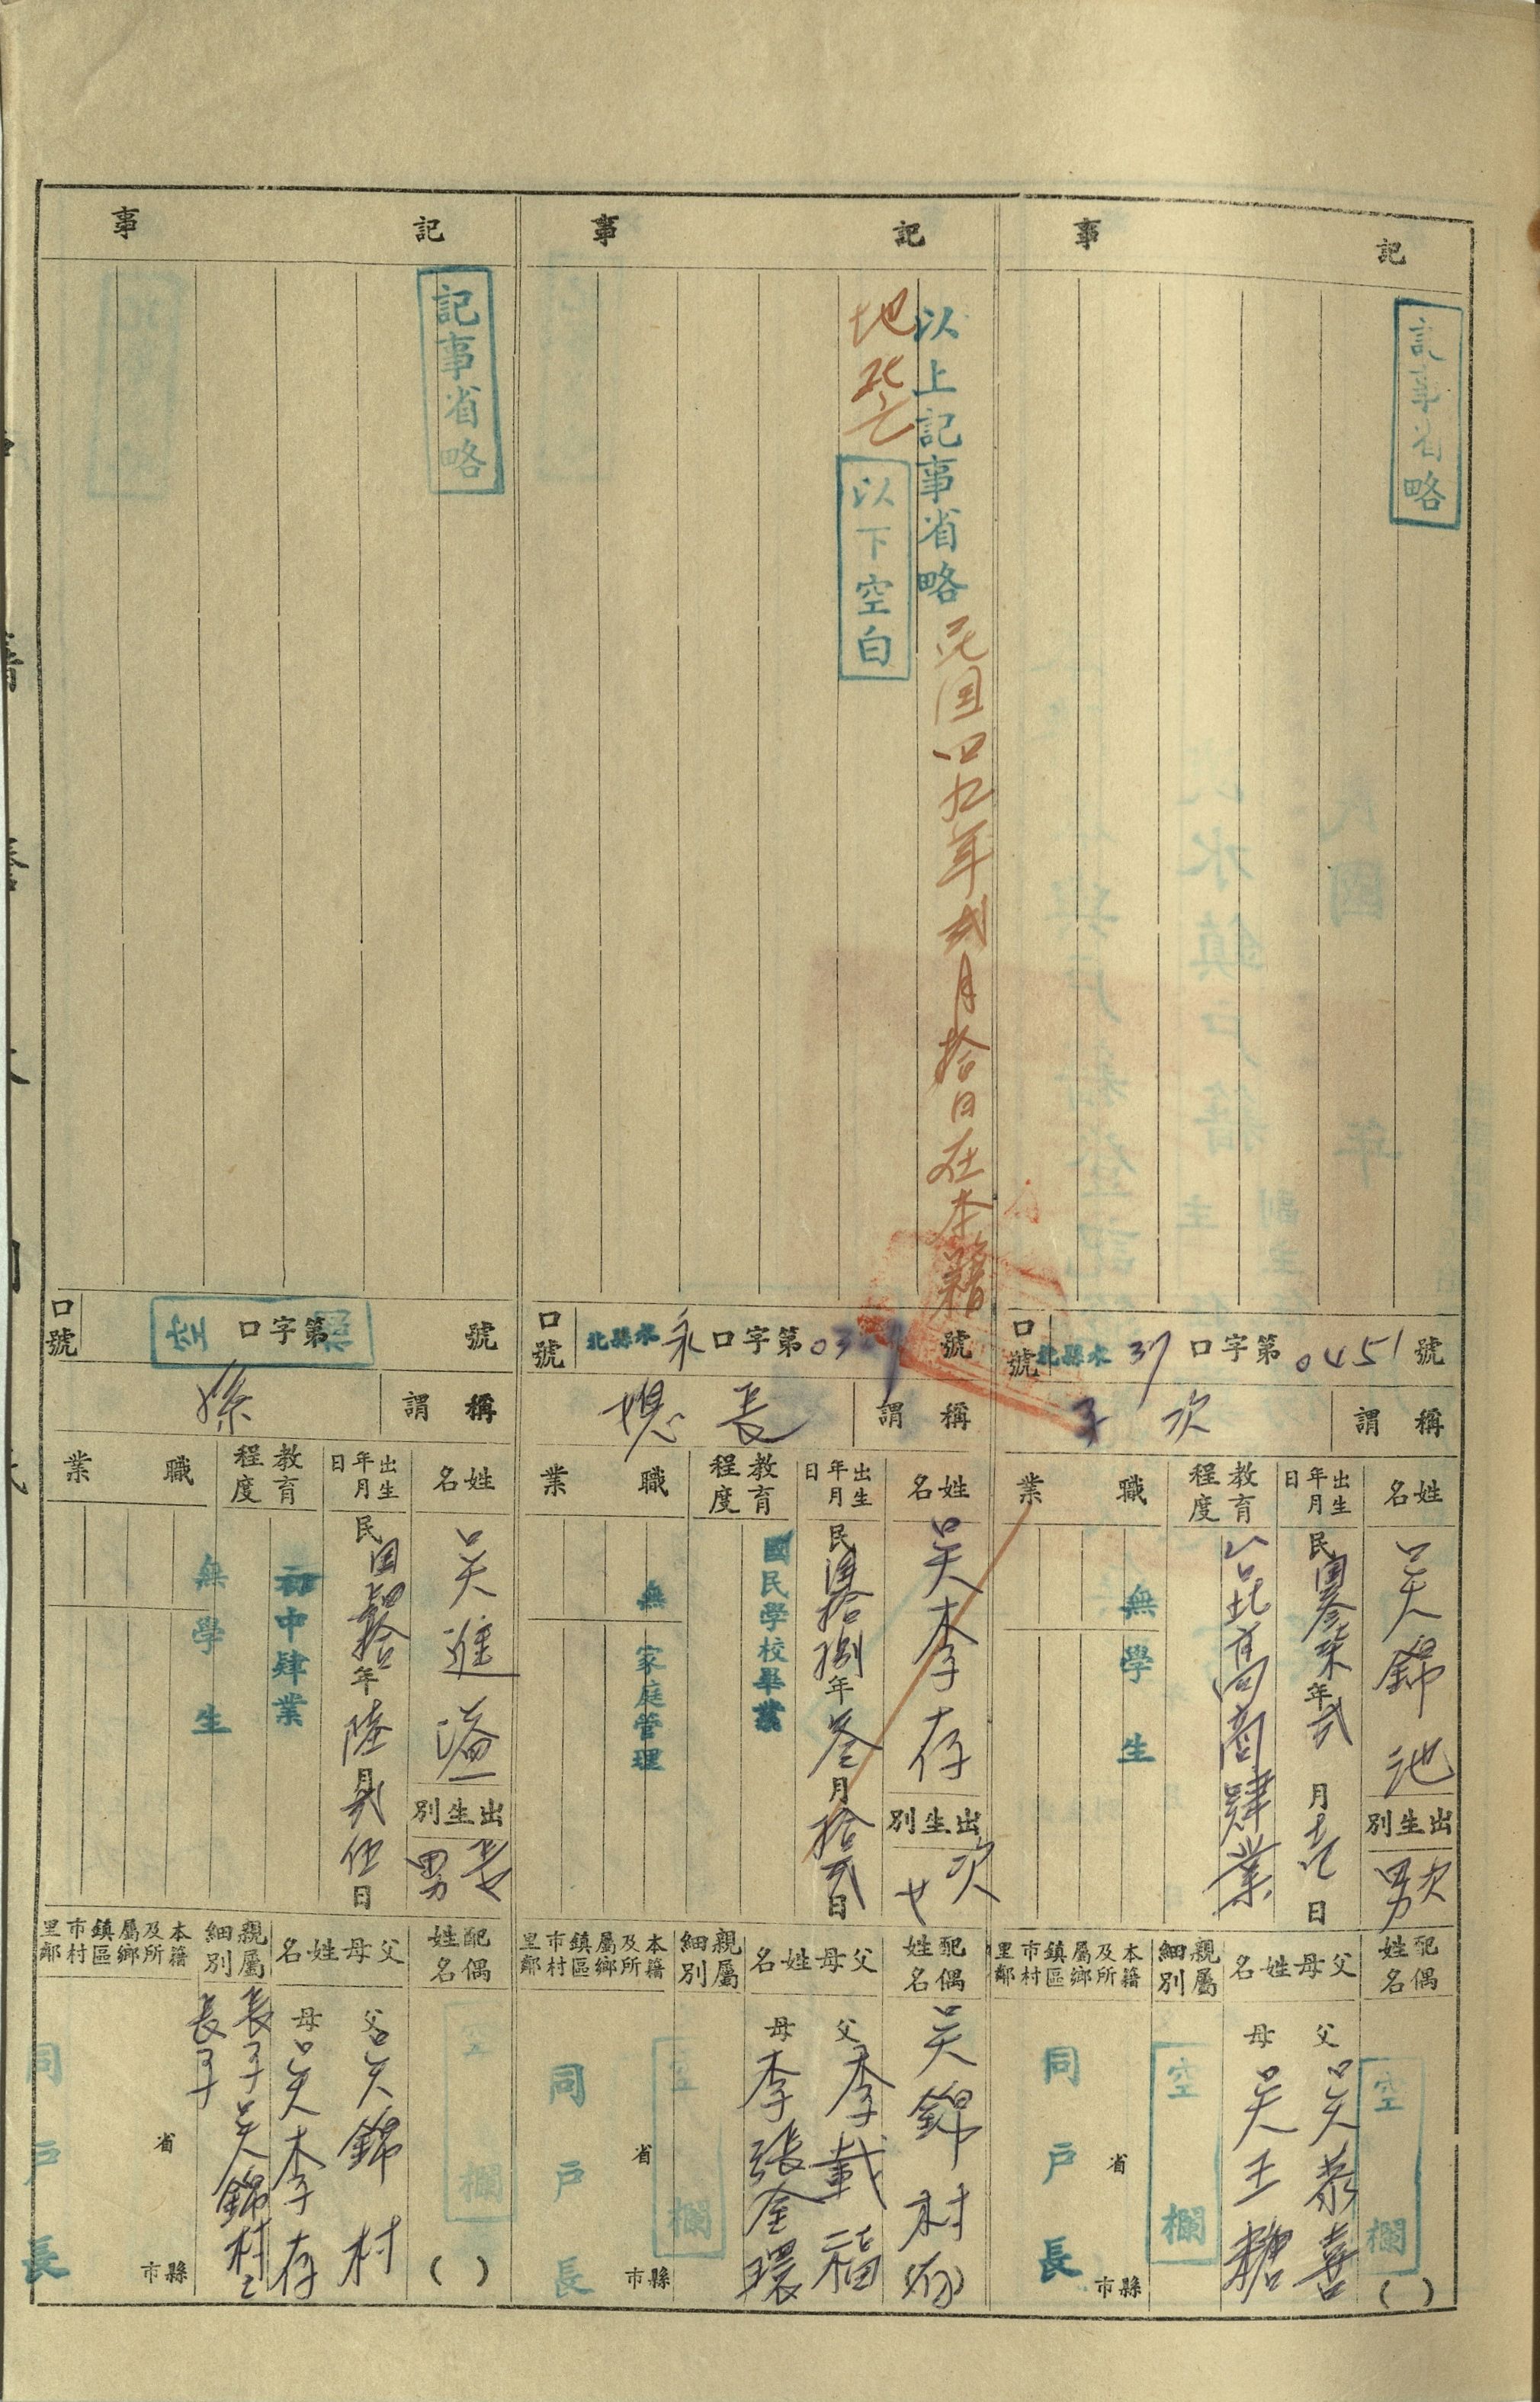 記事
記事省略
口號 北縣水 37 口字第 0451 號
稱謂 次子
姓名 吳錦池
出生別 次男
出生年月日 民國參柒年貳月壱日
教育程度 台北市高商肄業
職業 無 學生
配偶姓名 空欄 ( )
父母姓名
父 吳恭喜
母 吳王糖
親屬細別 空欄
本籍及所屬鄉鎮區市村里鄰 省 縣市
同戶長
記事
以上記事省略 民國四九年貳月拾日在本籍
地死亡
以下空白
口號 北縣水 永 口字第 03 號
稱謂 長媳
姓名 吳李存
出生別 次女
出生年月日 民國拾捌年參月拾貳日
教育程度 國民學校畢業
職業 無 家庭管理
配偶姓名 吳錦村
父母姓名
父 李載福
母 李張金環
親屬細別 空欄
本籍及所屬鄉鎮區市村里鄰 省 縣市
同戶長
記事
記事省略
口號 口字第 號
稱謂 孫
姓名 吳進溢
出生別 長男
出生年月日 民國 拾年陸月貳伍日
教育程度 初中肄業
職業 無 學生
配偶姓名 空欄 ( )
父母姓名
父 吳錦村
母 吳李存
親屬細別 長子吳錦村之
長子
本籍及所屬鄉鎮區市村里鄰 省 縣市
同戶長